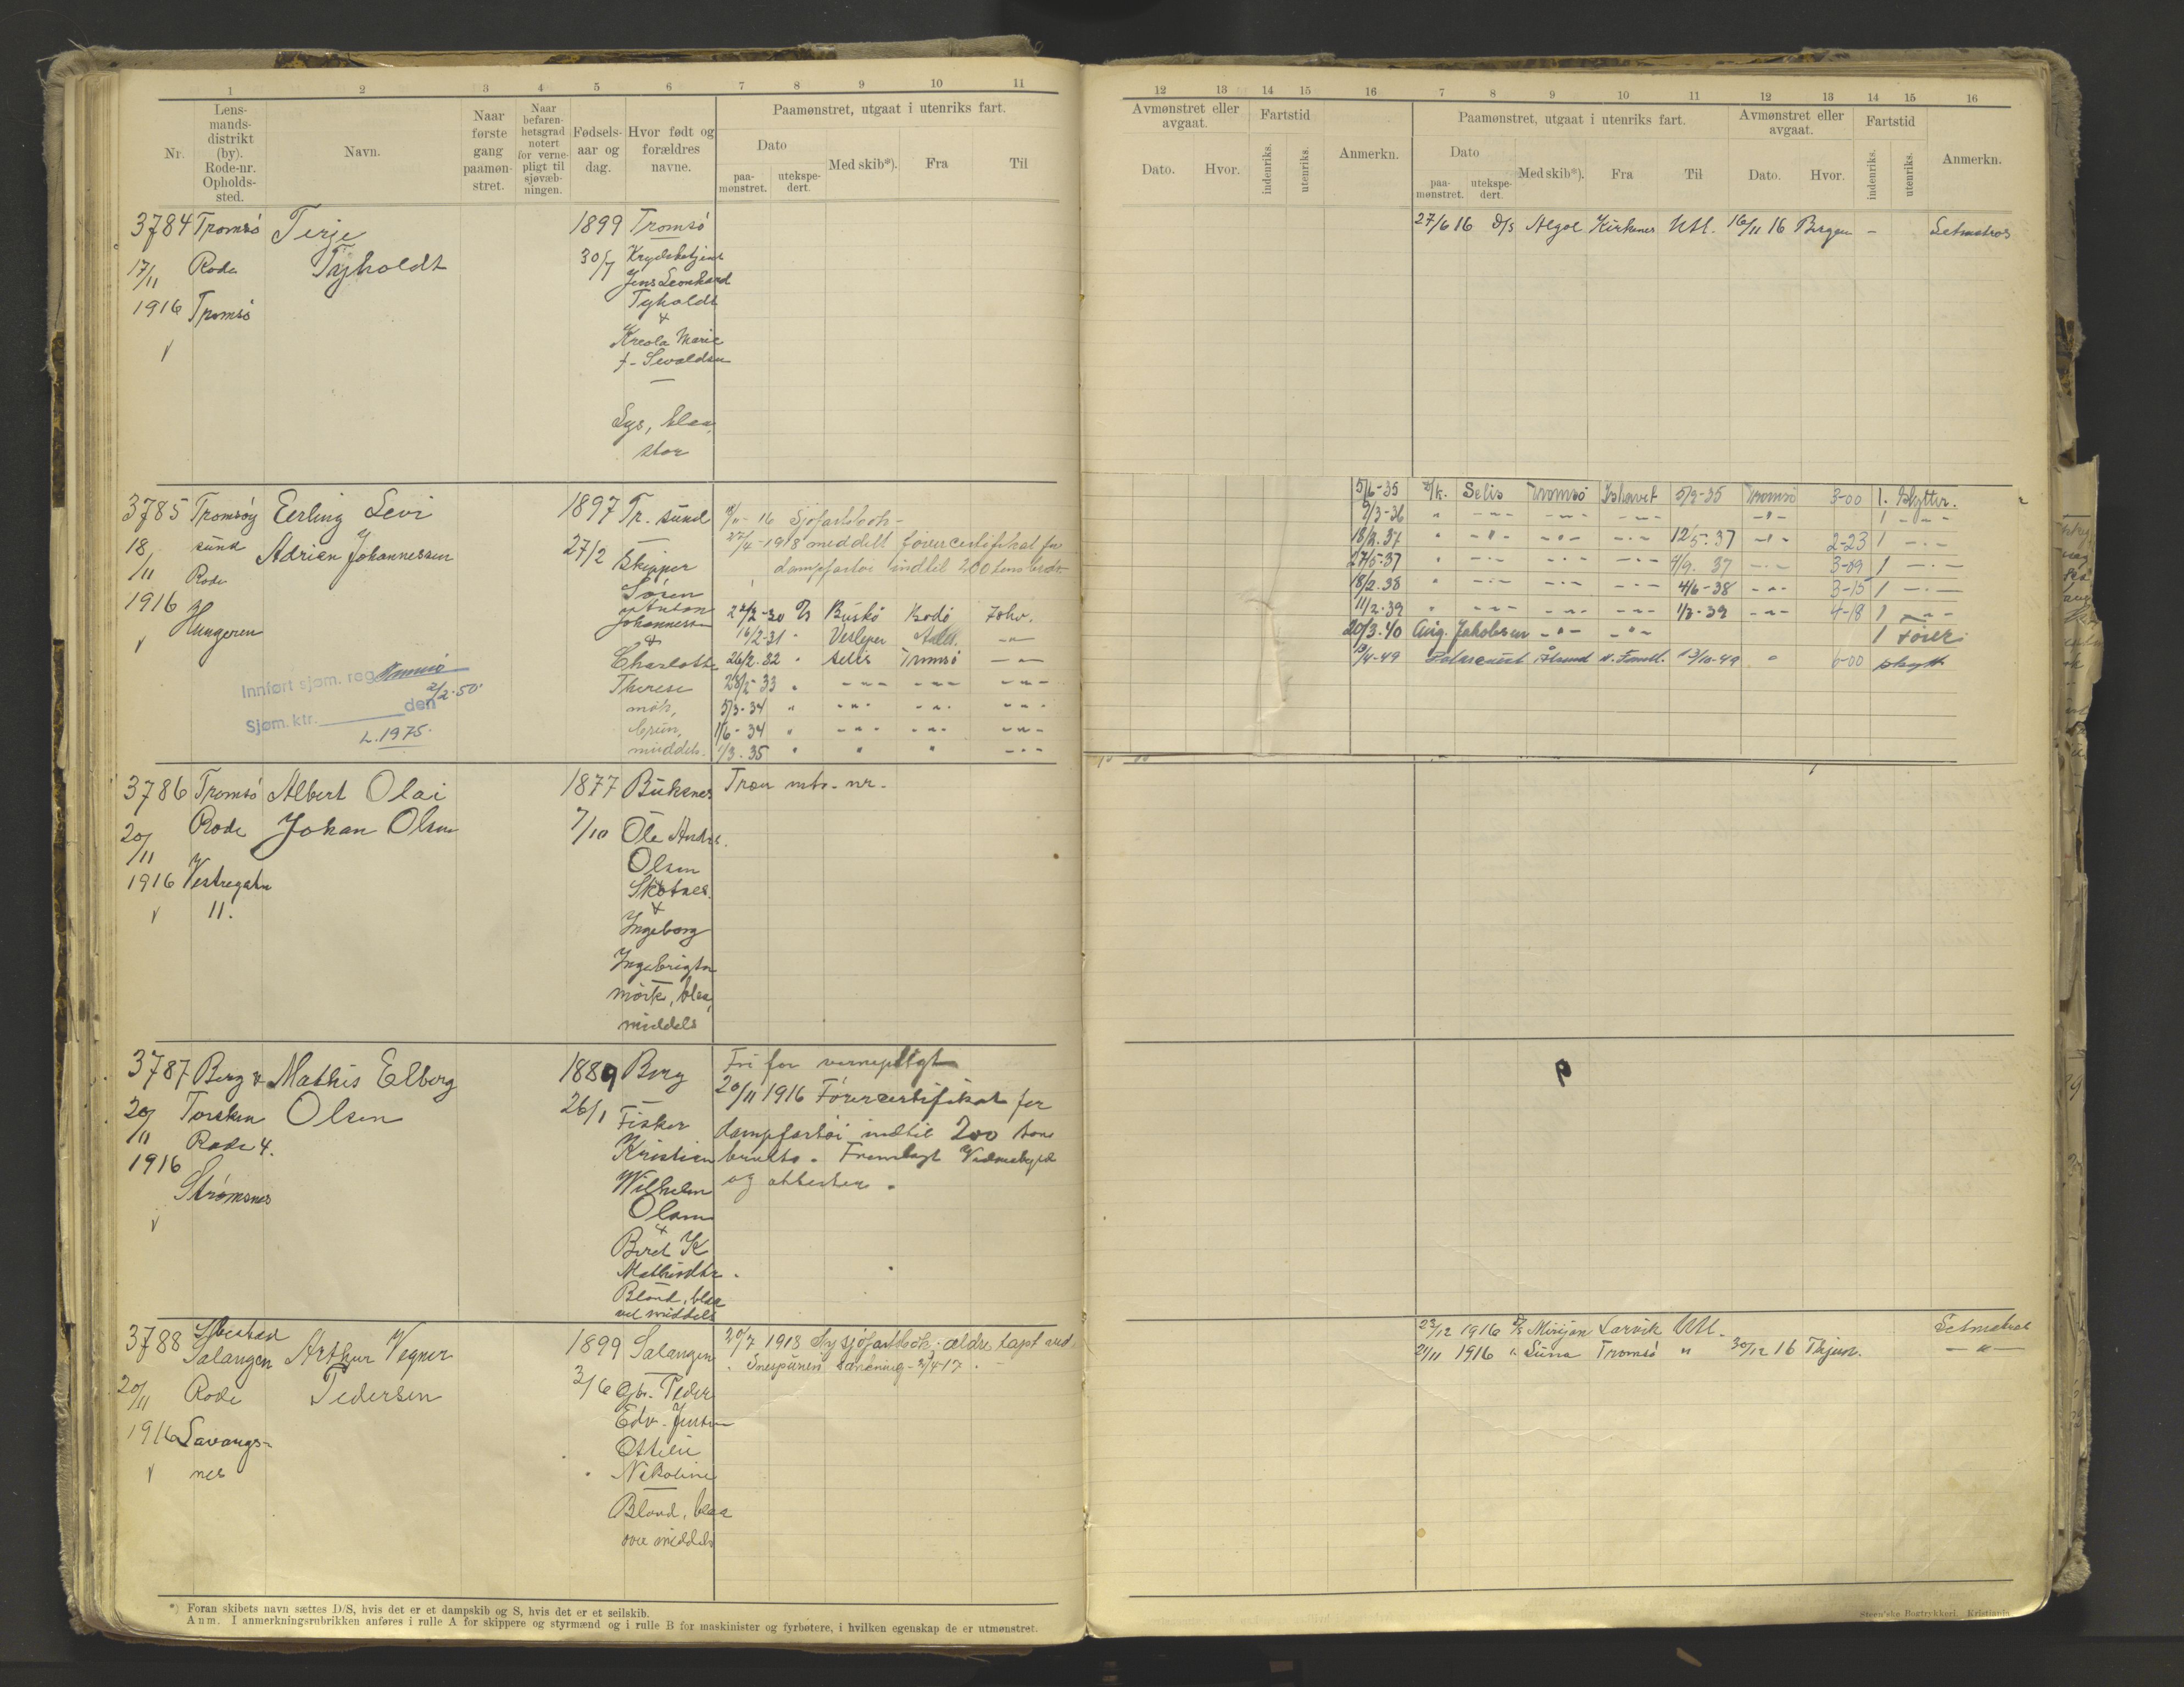 1 2 3 4 5 6 7 8 9 10 11
Nr.
Lens-
mands-
distrikt
(by).
Rode-nr.
Opholds-
sted.
Navn.
Naar
første
gang
paamøn-
stret.
Naar
befaren-
hetsgrad
notert
for verne-
pligt til
sjøvæb-
ningen.
Fødsels-
aar og
dag.
Hvor født og
forældres
navne.
Paamønstret, utgaat i utenriks fart.
Dato
paa-
mønstret.
utekspe-
dert.
Med skib*).
Fra
Til
3784 Tromsö Terje 1899 Tromsö
17/11 Rode Tyholdt 30/7
Jens Leonhard
1916 Tromsö Tyholdt
&
Kreola Marie
f. Sevaldsen
Lys, blaa,
stor
3785 Tromsöy Eerling Levi 1897 Tr. sund
18/11 sund Adrian Johannessen 27/2 Skipper
Rode Sören
1916 Hungeren Anton
Johannessen
&
Charlotte
Therese
mörk,
brun,
middels.
16 Sjöfartsbok
27/4-1918 meddelt förercertifikat for
dampfartöi indtil 200 tons brutto
22/2-30 D/S Buskö Bodö Ishv.
16/2-31 " Vesleper Aales. -"-
26/2.32 " Selis Tromsö -"-
28/2-33 " -"- -"- -"-
5/3-34 " -"- -"- -"-
1/6-34 " -"- -"- -"-
1/3.35 " " " -"-
Innført sjøm. reg Tromsö
Sjøm. ktr. den 2/2-50
L. 1975.
3786 Tromsö Albert Olai 1877 Buksnes Træn mts. nr.
20/11 Rode Johan Olsen 7/10 Ole Andr.
Olsen
1916 Vestregata Skotnes
11. &
Ingeborg
Ingebrigtn
mörk, blaa,
middels
3787 Berg & Mathis Elberg 1889 Berg Fri for vernepligt
20/11 Torsken Olsen 26/1 Fisker 20/11 1916 Förercertifikat for
Rode 4. Kristian dampfartöi indtil 200 tons
1916 Strömsnes Wilhelm brutto. Fremlagt
Olsen og attester.
&
Berit K
Mathisdtr.
Blond, blaa
vel middels
3788 Ibestad
Salangen Arthur Vegner 1899 Salangen 20/7 1918 Ny sjöfartsbok, ældre tapt ved
20/11 Rode Pedersen 3/6 Gbr. Peder Snespurven sænkning
1916 Lavangs- Edv. Jensen
nes Ottelie
Nikoline
Blond, blaa
over middels
*) Foran skibets navn sættes D/S, hvis det er et dampskib og S, hvis det er et seilskib.
Anm. I anmerkningsrubrikken anføres i rulle A for skippere og styrmænd og i rulle B for maskinister og fyrbøtere, i hvilken egenskap de er utmønstret.
12 13 14 15 16 7 8 9 10 11 12 13 14 15 16
Avmønstret eller
avgaat.
Dato.
Hvor.
Fartstid
indenriks.
utenriks.
Anmerkn.
Paamønstret, utgaat i utenriks fart.
Dato
paa-
mønstret.
utekspe-
dert.
Med skib*).
Fra
Til
Avmønstret eller
avgaat.
Dato.
Hvor.
Fartstid
indenriks.
utenriks.
Anmerkn.
27/6 16 D/S Algol Kirkenes Utl. 16/11 16 Bergen - Letmatros
5/6-35 M/k. Selis Tromsö Ishavet 5/9-35 Tromsö 3-00 1. skytter.
9/3-36 " -"- -"- -"- -"- 1 -"-
18/2.37 " -"- -"- -"- 12/5-37 -"- 2-23 1 -"-
27/5-37 " -"- -"- -"- 4/9.37 -"- 3-09 1 -"-
18/2-38 " -"- -"- -"- 4/6-38 -"- 3-15 1 -"-
11/2.39 " -"- -"- -"- -"- 4-18 1 -"-
20/3.40 Aug. Jakobsen -"- -"- 1 Förer
Polarquest Ålesund 13/10-49 " 6-00 skytt
p
23/12 1916 D/S Mirijan Larvik Utl. Letmatros
21/11 1916 " Tromsö " 30/12 16 -"-
Steen'ske Bogtrykkeri. Kristiania